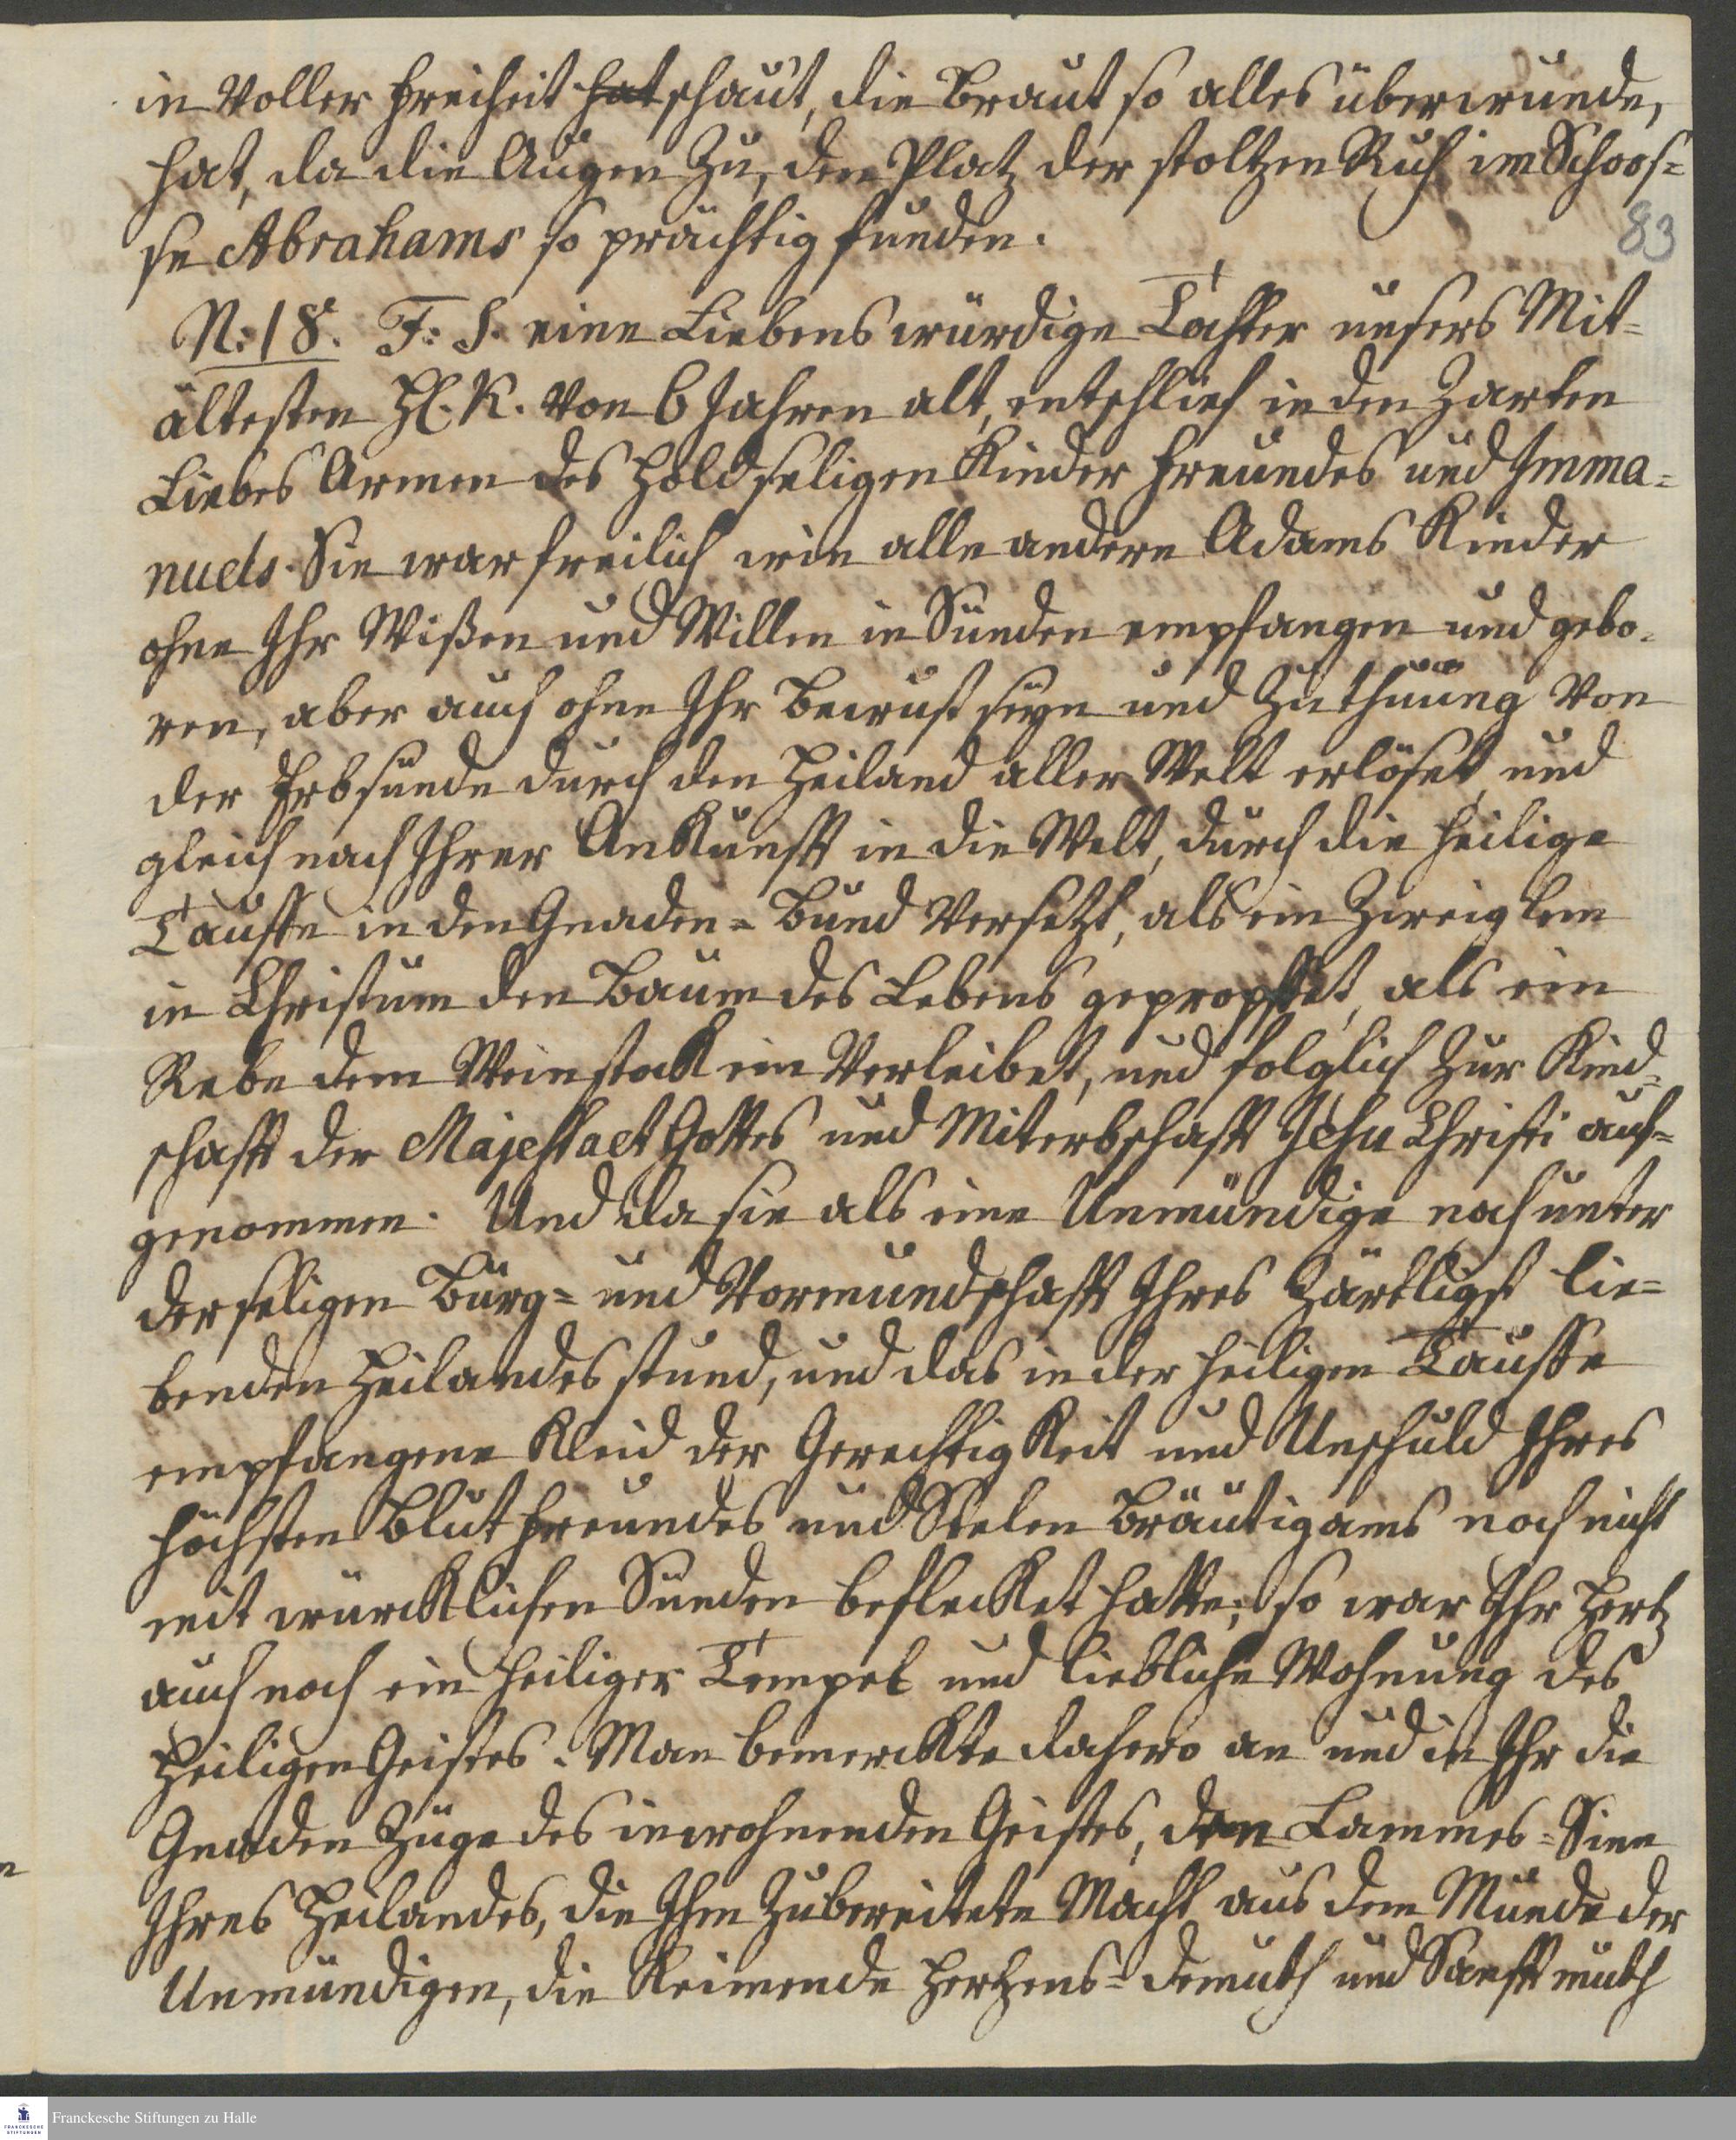 in voller Freiheit hat schaut, die Braut so alles überwunde,
hat, da die Augen zu, den Platz der stoltzen Ruh im Schoos=
se Abrahams so prächtig funden.
83
N: 18. F: S. eine Liebens würdige Tochter unsers Mit=
ältesten H. K. von 6 Jahren alt, entschlief in den zarten
Liebes Armen des Holdseligen Kinder Freundes und Imma=
nuels. Sie war freilich wie alle andere Adams Kinder
ohne Ihr Wißen und Willen in Sünden empfangen und gebo=
ren, aber auch ohne Ihr Bewust seyn und Zuthuung von
der Erbsünde durch den Heiland aller Welt erlöset, und
gleich nach Ihrer Ankunfft in die Welt, durch die heilige
Tauffe in den Gnaden=Bund versetzt, als ein Zweiglein
in Christum den Baum des Lebens gepropffet, als ein
Rebe dem Weinstock ein verleibet, und folglich zur Kind=
schafft der Majestaet Gottes und Miterbschafft Jesu Christi auf=
genommen. Und da sie als eine Unmündige noch unter
der seligen Bürg= und Vormundschafft Ihres zärtligst lie=
benden Heilandes stund, und das in der heiligen Tauffe
empfangene Kleid der Gerechtigkeit und Unschuld Ihres
höchsten Blut Freundes und Seelen Bräutigams noch nicht
mit würcklichen Sünden beflecket hatte; so war Ihr Hertz
auch noch ein heiliger Tempel und liebliche Wohnung des
Heiligen Geistes. Man bemerckte dahero an und in Ihr die
Gnaden Züge des inwohnenden Geistes, den Lammes=Sinn
Ihres Heilandes, die Ihm zubereitete Macht aus dem Munde der
Unmündigen, die Keimende Hertzens=Demuth und Sanfftmuth
Franckesche Stiftungen zu Halle